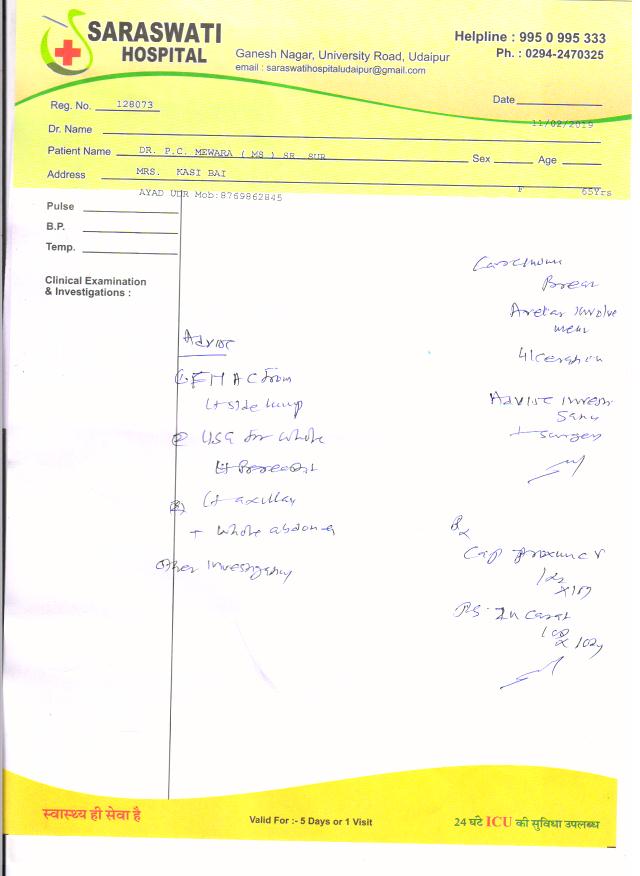 SARASWATI
HOSPITAL
Ganesh Nagar, University Road, Udaipur
email : saraswatihospitaludaipur@gmail.com
Helpline : 995 0 995 333
Ph. : 0294-2470325
Reg. No. 128073
Date 11/02/2019
Dr. Name
Patient Name DR. P.C. MEWARA ( MS ) SR. SUR
Sex Age
Address MRS. KASI BAI
F 65Yrs
AYAD UDR Mob:8769862845
Pulse
B.P.
Temp.
Clinical Examination
& Investigations :
Advise
① FNAC from
Lt side lump
② USG for whole
Lt Breast
Lt axillay
+ whole abdomen
Other Investigancy
Carcinoma
Breas
Involve
men
Ulceration
Advise Invest
+ surgery
Rx
Cap
स्वास्थ्य ही सेवा है
Valid For :- 5 Days or 1 Visit
24 घंटे ICU की सुविधा उपलब्ध